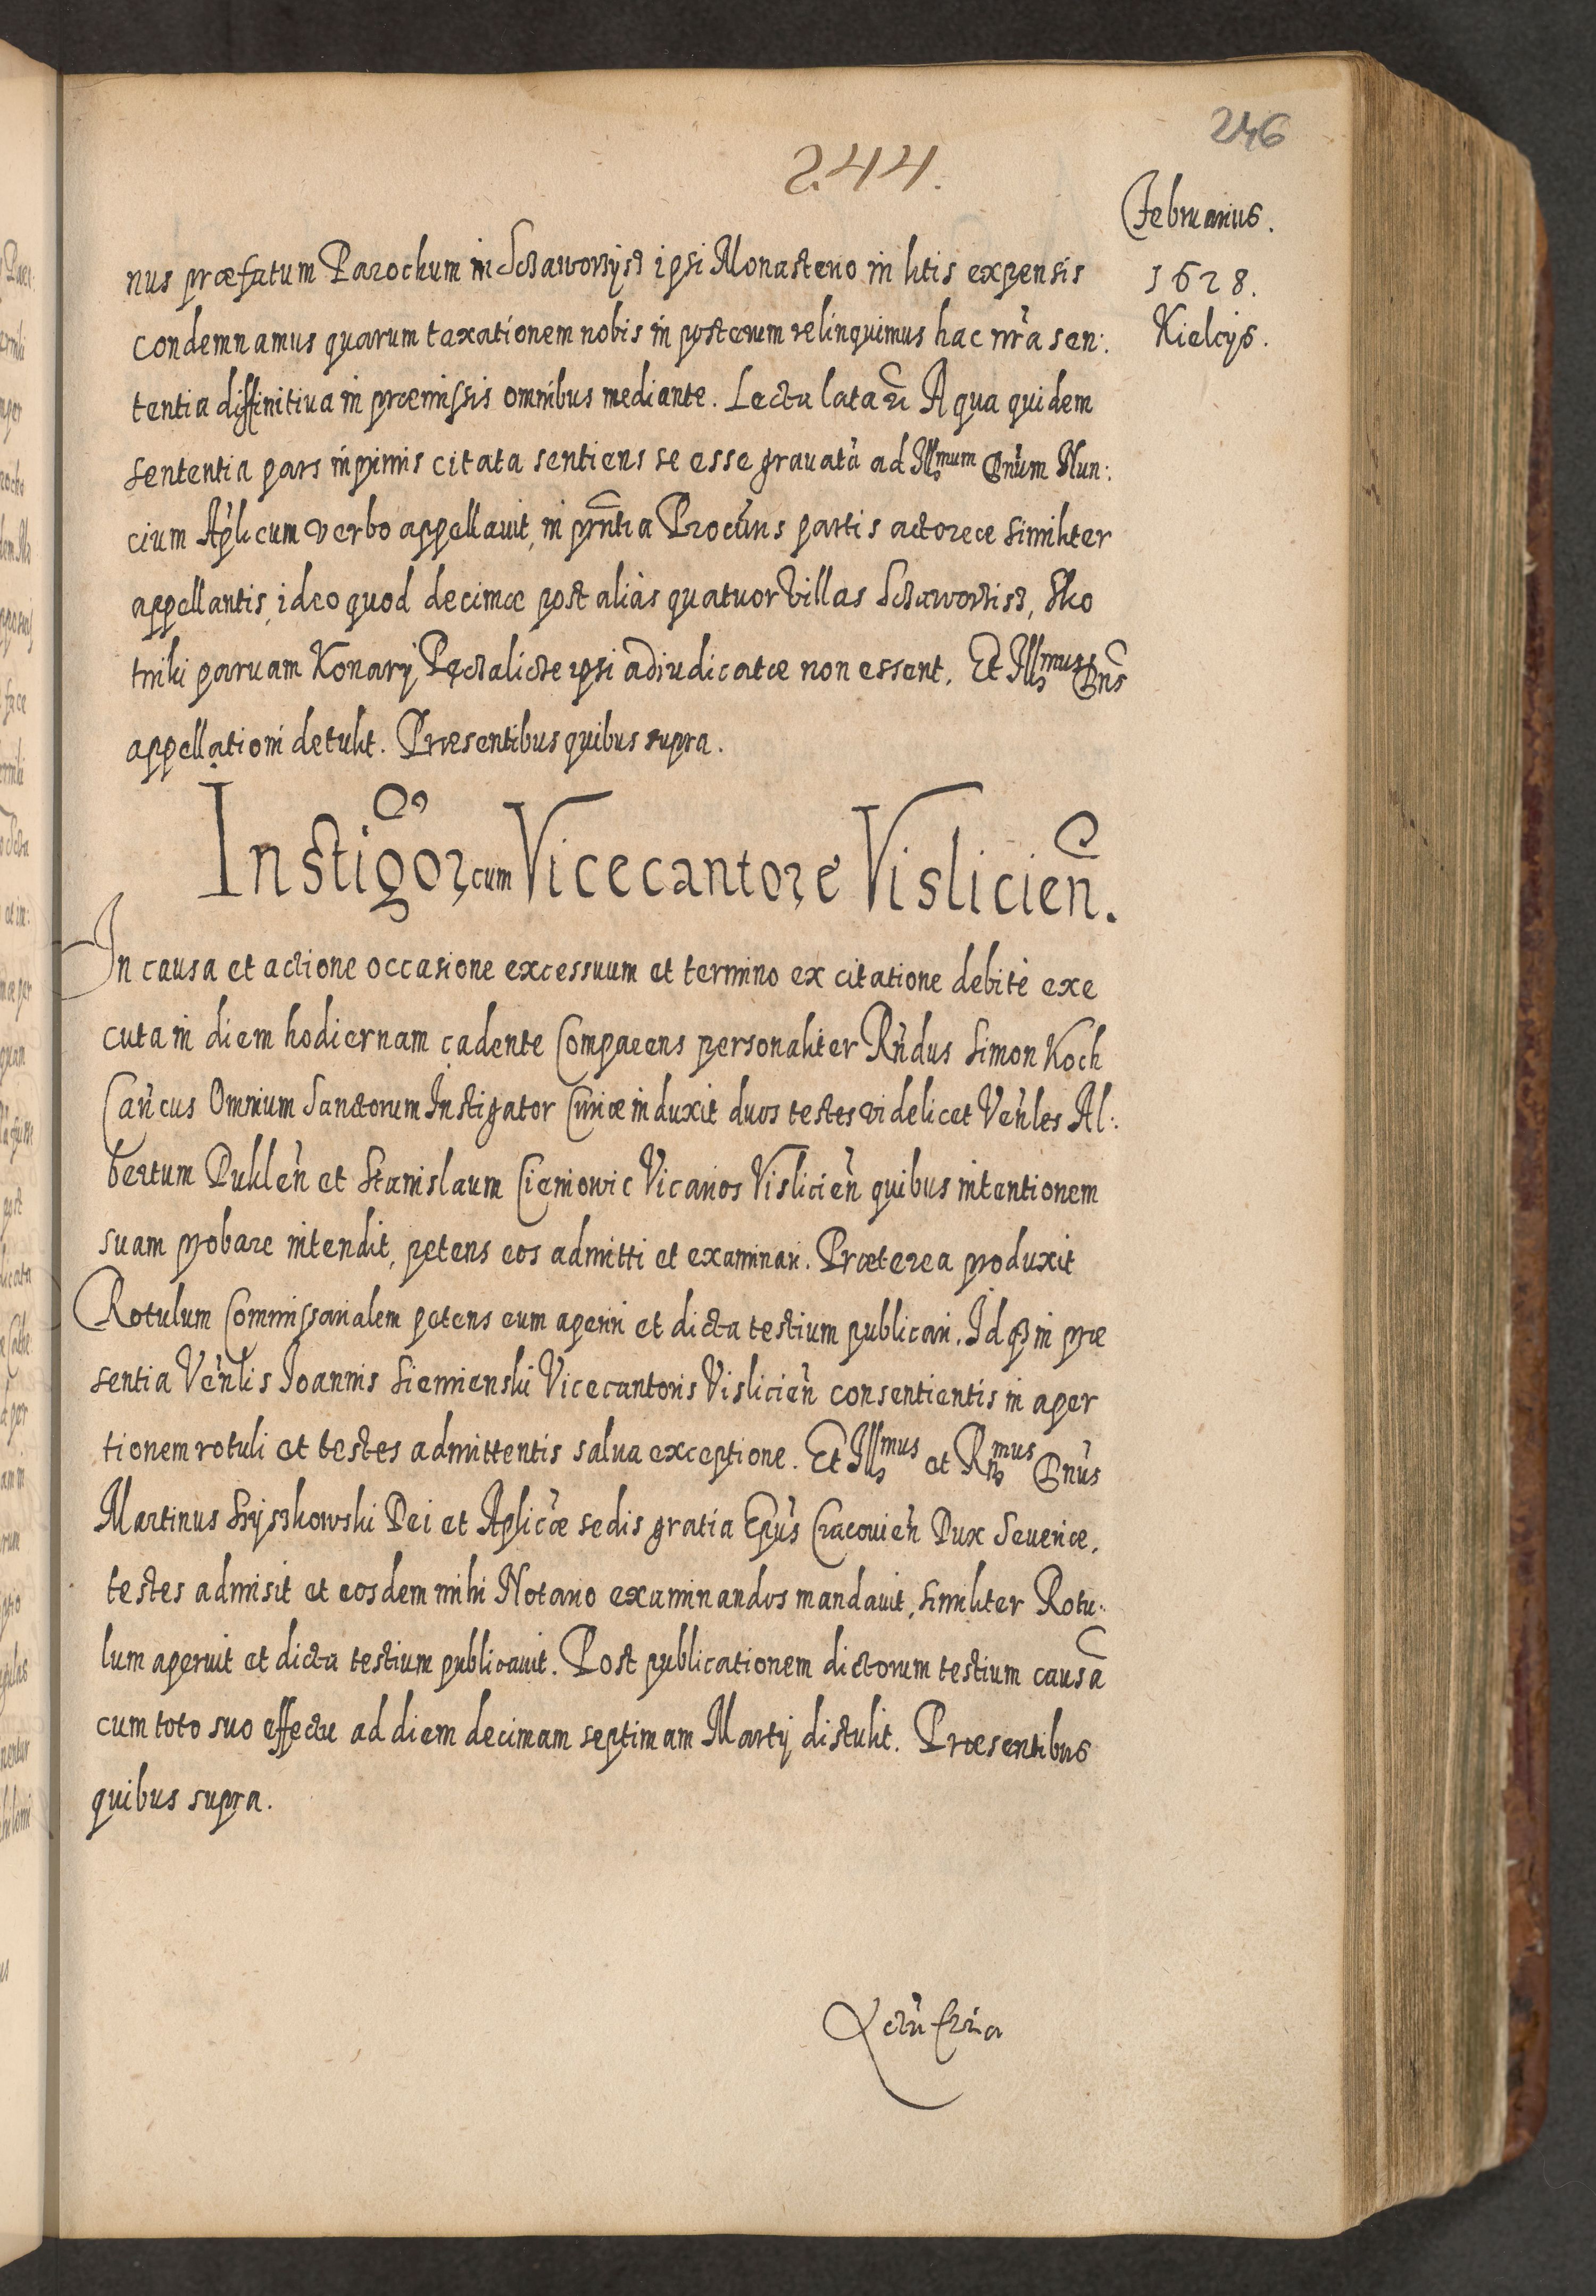 246
244.
Februarius.
1628.
Kielcijs.
nus præfatum Parochum in Sczaworyż ipsi Monasterio in litis expensis
condemnamus quarum taxationem nobis in posterum relinquimus hac nr̃a sen:
tentia diffinitiua in præmissis omnibus mediante. Lecta lata A qua quidem
sententia pars inprimis citata sentiens se esse grauatã ad Illmum Dnũm Nun:
cium Aplicum verbo appellauit, in pñtia Procuñs partis actoreæ similiter
appellantis, ideo quod decimæ post aliàs quatuor Villas
paruam Konary, ipsi adiudicatæ non essent. Et Illmus Dns
appellationi detulit. Præsentibus quibus supra.
Instigor cum Vicecantore Vislicień.
In causa et actione occasione excessuum et termino ex citatione debitè exe
cuta in diem hodiernam cadente Comparens personaliter Rñdus Simon Koch
Cañcus Omnium Sanctorum Instigator Curiæ induxit duos testes videlicet Veñles Al:
bertum Duklen̄ et Stanislaum Vicarios Vislicień quibus intentionem
suam probare intendit, petens eos admitti et examinari. Præterea produxit
Rotulum Commissarialem petens eum aperiri et dicta testium publicari. Idq3 in præ
sentia Veñlis Joannis Siemienski Vicecantoris Vislicień consentientis in aper
tionem rotuli et testes admittentis salua exceptione. Et Illmus et Rmus Dnus
Martinus Szyszkowski Dei et Aplicæ sedis gratia Epũs Cracouień Dux Seueriæ,
testes admisit et eosdem mihi Notario examinandos mandauit, similiter Rotu:
lum aperuit et dicta testium publicauit. Post publicationem dictorum testium causã
cum toto suo effectu ad diem decimam septimam Martij distulit. Præsentibus
quibus supra.